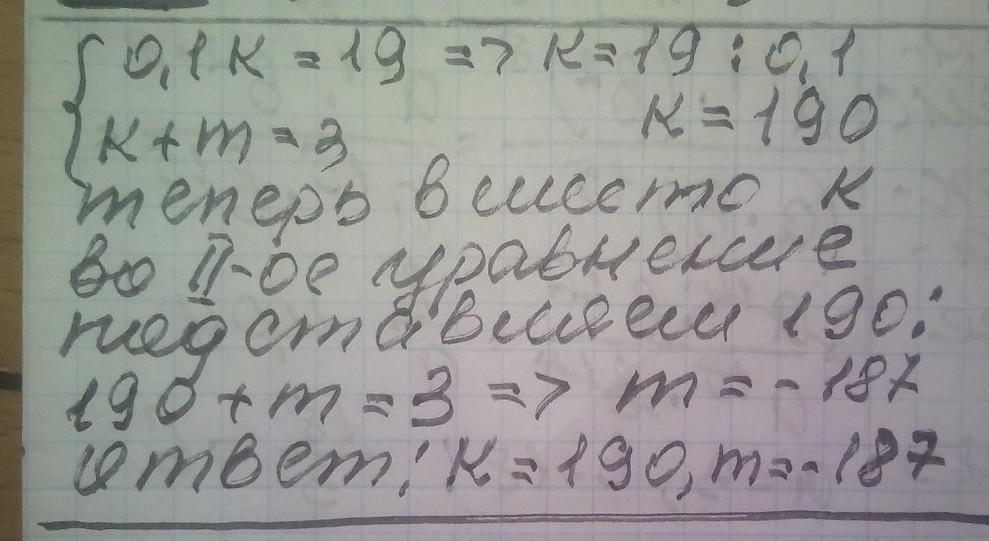 0,1к = 19 => к = 19 : 0,1
к + m = 3 к = 190
теперь вместо к
во II-ое уравнение
подставляем 190:
190 + m = 3 => m = -187
Ответ: к = 190, m = -187